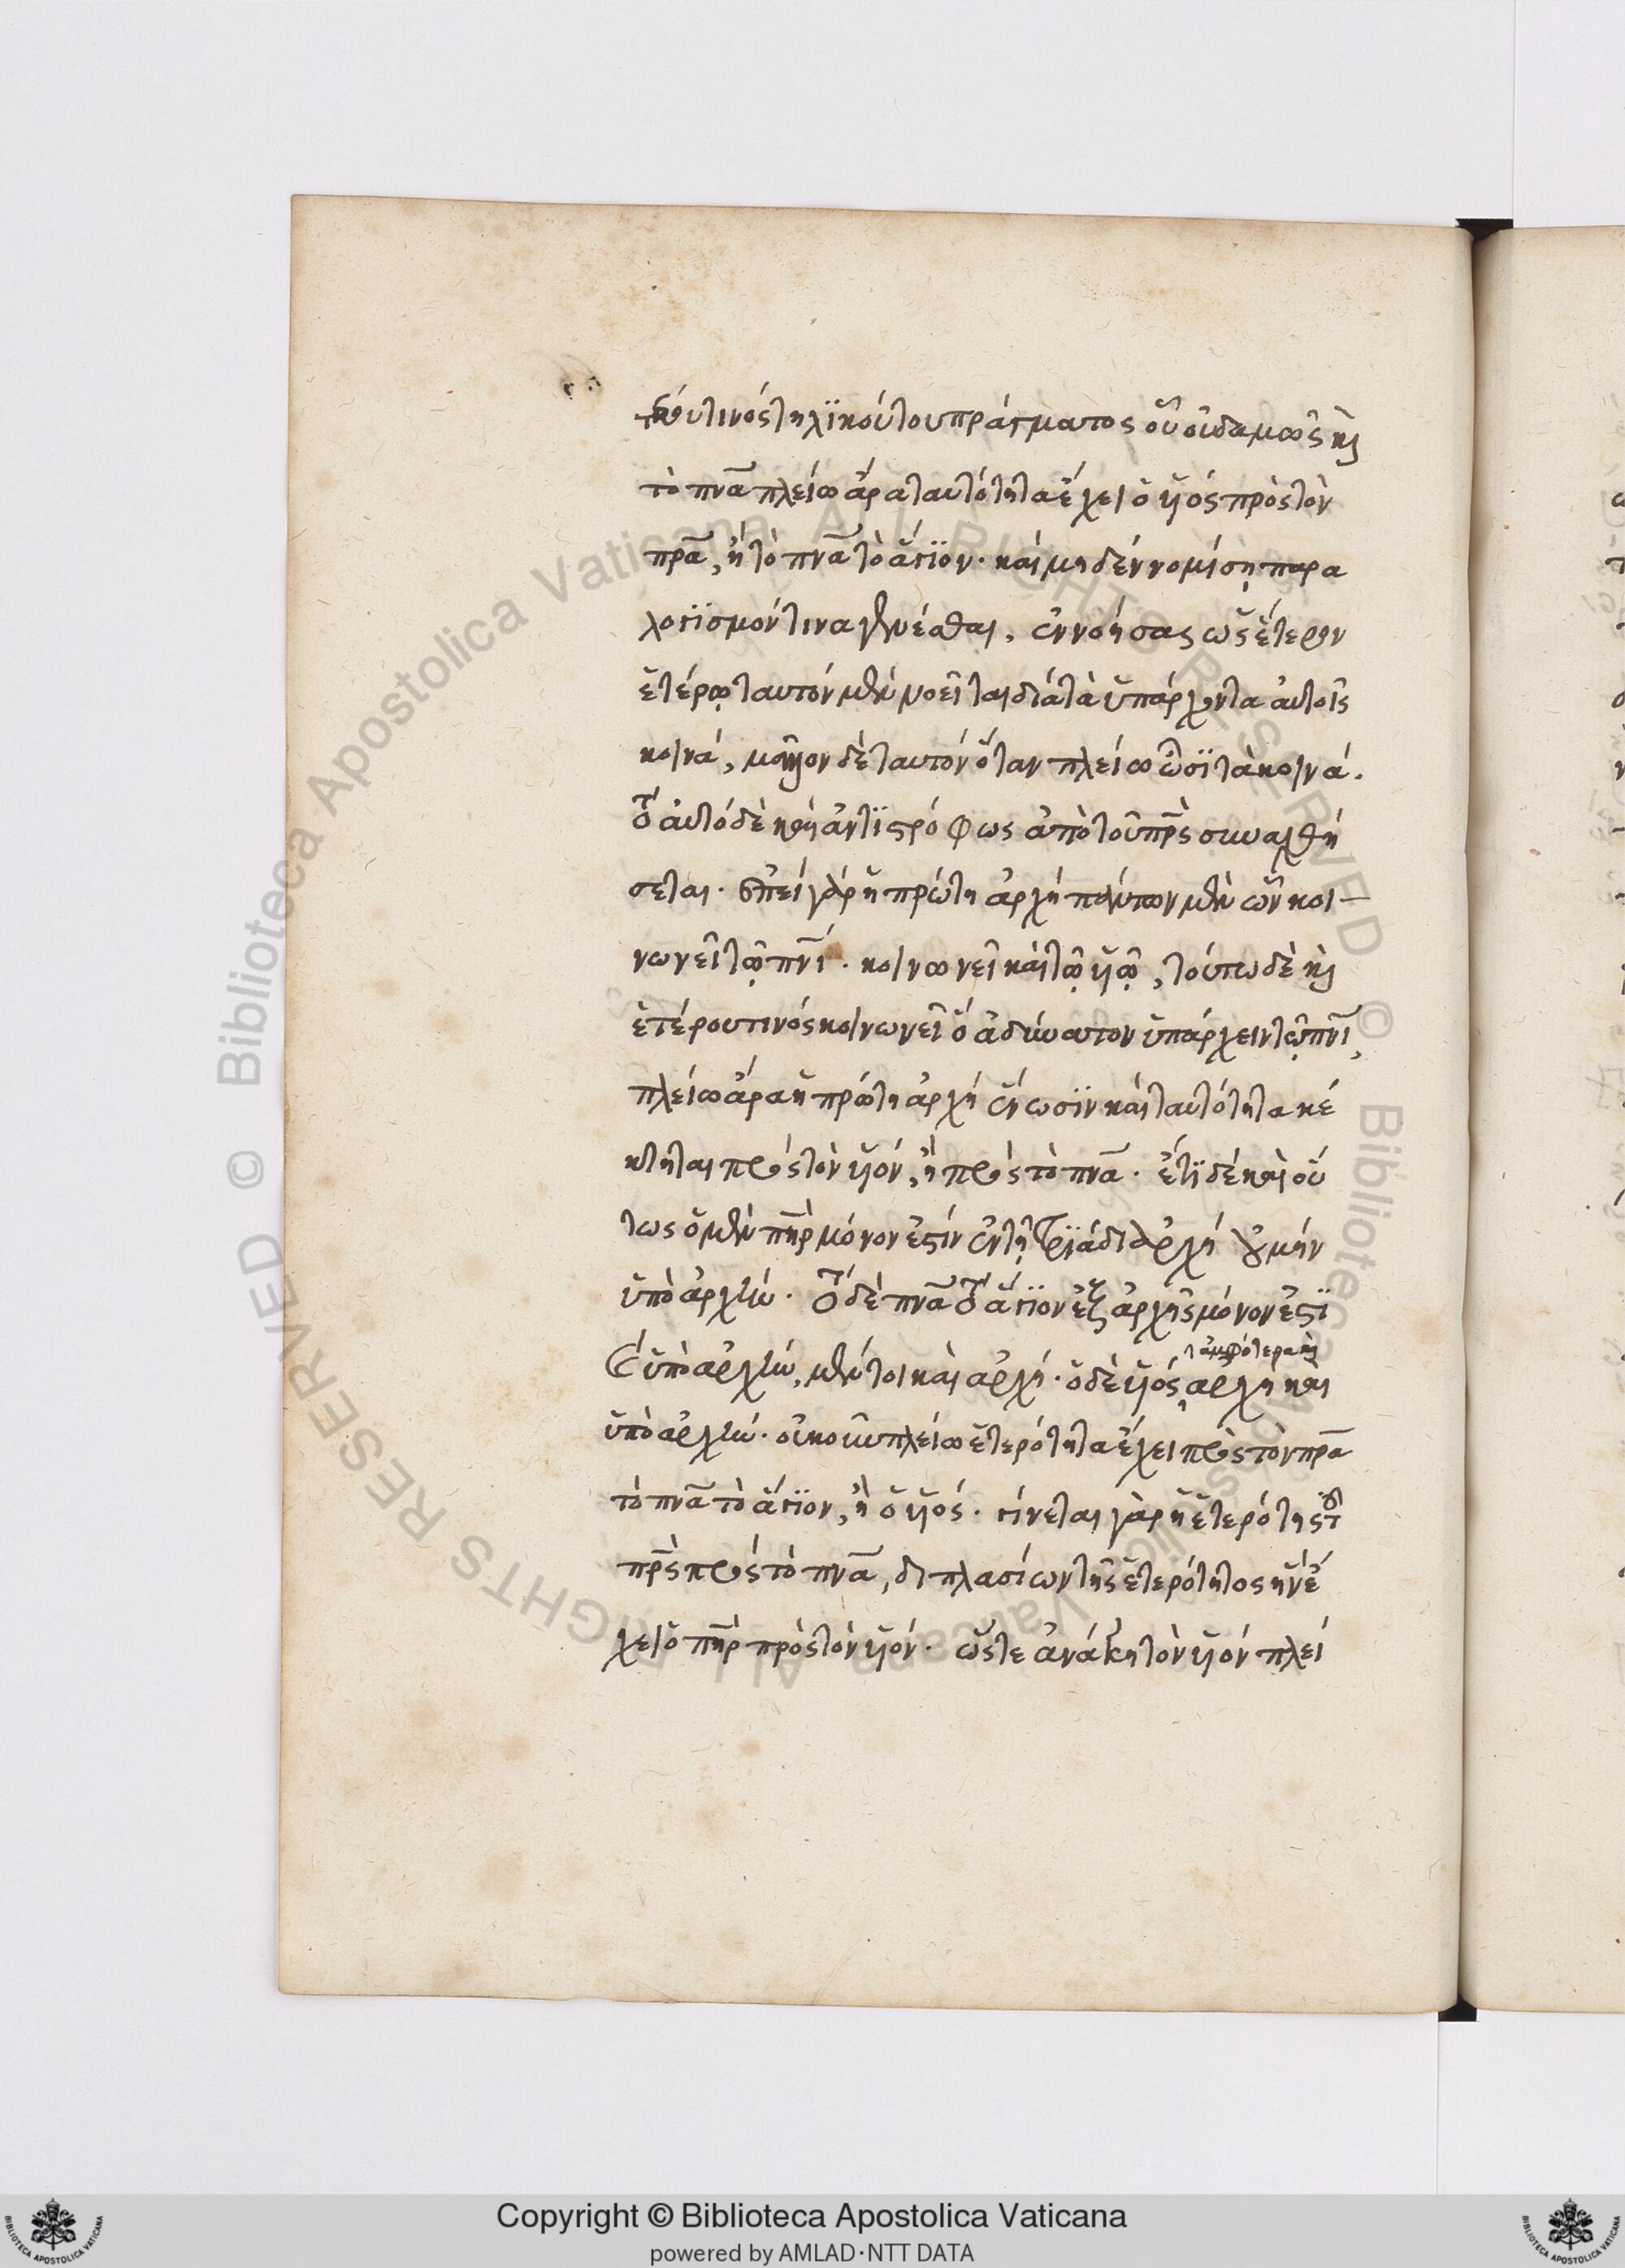 τούτινος τηλϊκούτου πράγματος οὗ οὐδαμῶς κὶ
τὸ πνᾶ πλείω ἄρα ταυτότητα ἔχει ὁ ὑϊός πρὸς τὸν
πρᾶ, ἢ τὸ πνᾶ τὸ ἅγϊον. καὶ μηδέν νομίσῃ παρα
λογϊσμόν τινα γενέσθαι, ἐννοήσας ὡς ἕτερον
ἑτέρῳ ταυτόν μὲν νοεῖται διὰ τὰ ὑπάρχοντα αὐτοῖς
κοινά, μᾶλλον δὲ ταυτόν ὅταν πλείω ὦσϊ τὰ κοινά.
τὸ αὐτό δὲ καὶ ἀντϊστρόφως ἀπὸ τοῦ πρς συναχθή
σεται. ἐπεί γὰρ ἡ πρώτη ἀρχή πάντων μὲν ὧν κοι
νωνεῖ τῷ πνϊ. κοινωνεῖ καὶ τῷ ὑϊῷ, τούτω δὲ κὶ
ἑτέρου τινός κοινωνεῖ ὅ ἀδύνατον ὑπάρχειν τῷ πνϊ,
πλείω ἄρα ἡ πρώτη ἀρχή ἕνωσϊν καὶ ταυτότητα κέ
κτηται πρὸς τὸν ὑϊόν, ἢ πρὸς τὸ πνᾶ. ἔτϊ δέ καὶ οὕ
τως ὁ μὲν πηρ μόνον ἐστίν ἐν τῇ τρϊάδι ἀρχή οὐ μήν
ὑπὸ ἀρχήν. τὸ δὲ πνᾶ τὸ ἅγϊον ἐξ ἀρχῆς μόνον ἐστϊ
καὶ ὑπὸ ἀρχήν, μὲν τοι καὶ ἀρχή. ὁ δὲ ὑϊός ἀρχη καὶ
τ ἀμφότερα κὶ
ὑπὸ ἀρχήν. οὐκοῦν πλείω ἑτερότητα ἔχει πρὸς τὸν πρᾶ
τὸ πνᾶ τὸ ἅγϊον, ἢ ὁ ὑϊός. γίνεται γὰρ ἡ ἑτερότης τοῦ
πρς πρὸς τὸ πνᾶ, διπλασίων τῆς ἑτερότητος ἣν ἔ
χει ὁ πηρ πρὸς τὸν ὑϊόν. ὥστε ἀνάγκη τὸν ὑϊόν πλεί
Copyright © Biblioteca Apostolica Vaticana
powered by AMLAD·NTT DATA